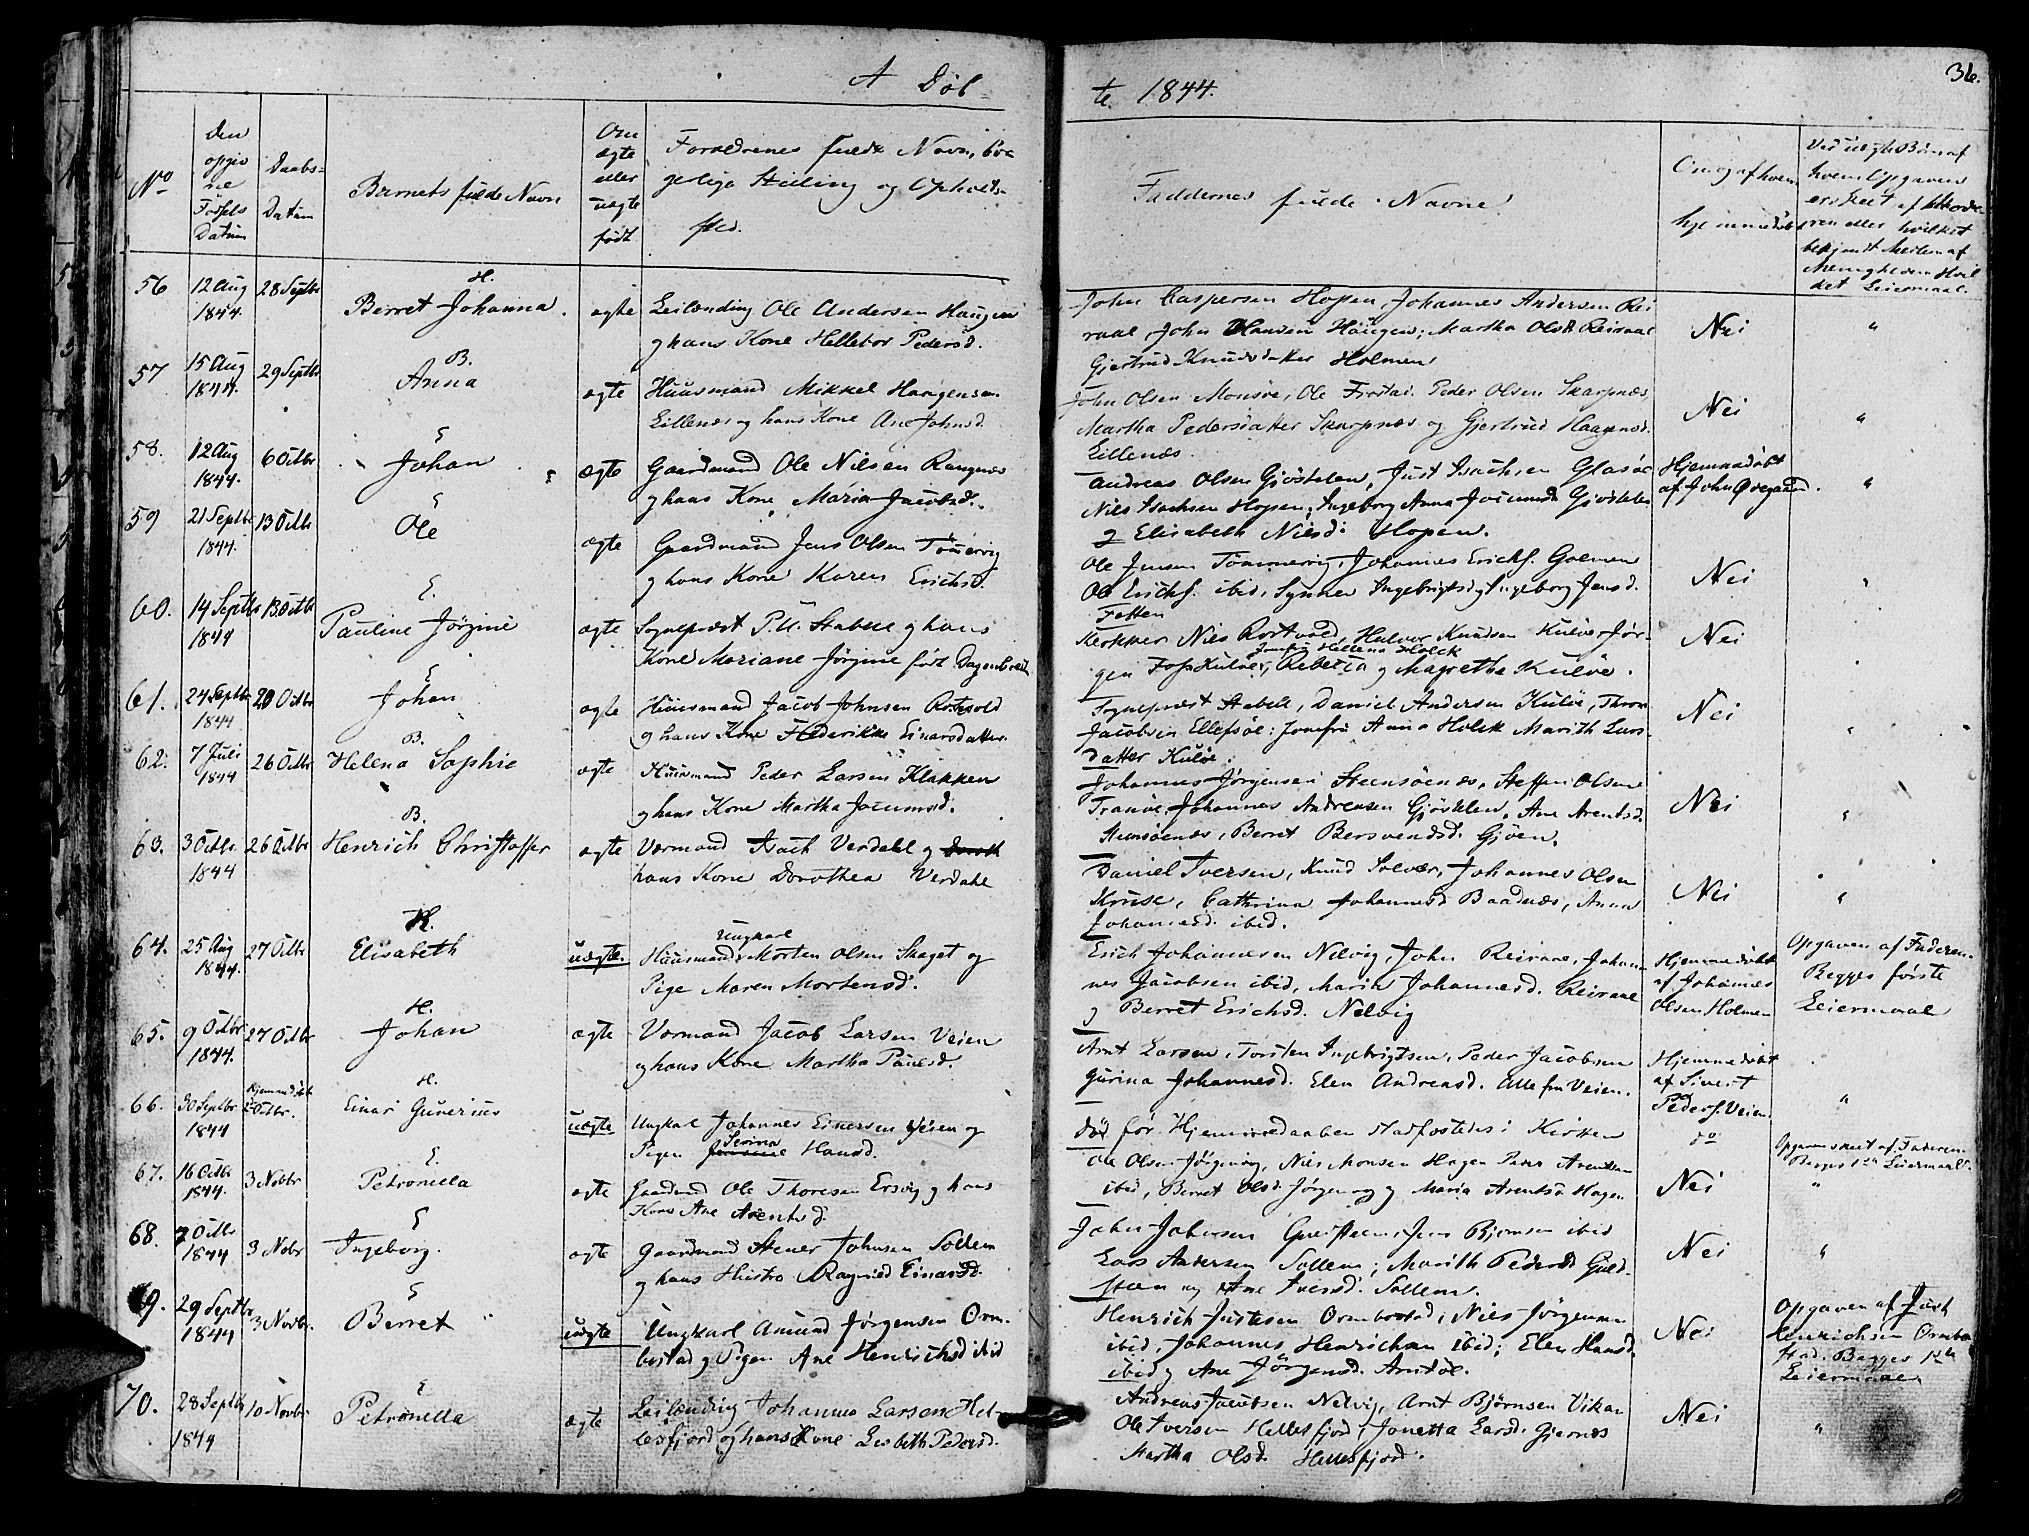 A Døb-
te 1844.
36.
No
den
opgiv
ne
Fødsels
Datum
Daabs-
Datum
Barnets fulde Navn
Om
ægte
eller
uægte
født
Forældrenes fulde Navn, bor
gerlige Stilling og Opholds-
sted.
Faddernes fulde Navne
Om og af hvem
hjemmedøbt
Ved uægte Børn af
hvem Opgaven
er skeet af Mode-
ren eller hvilket
bekjendt Medlem af
Menigheden Hvil
ket Leiermaal.
56
12 Aug
1844.
28 Septbr
H.
Berret Johanna.
ægte
Leilænding Ole Andersen Haugen
og hans Kone Hellebor Pedersd.
John Caspersen Hopen, Johannes Andersen Rei
raal, John Hansen Haugen; Martha Olsdr Reiraal
Gjertrud Knudsdatter Holmen
Nei
"
57
15 Aug
1844.
29 Septbr
B.
Anna
ægte
Huusmand Mikkel Haagensen
Lillenæs og hans Kone Ane Johnsd.
John Olsen Monsøe, Ole Frostad. Peder Olsen Skarpnæs
Martha Pedersdatter Skarpnæs og Gjertrud Haagensd.
Lillenæs.
Nei
"
58.
12 Aug
1844.
6 Octbr
E
Johan
ægte
Gaardmand Ole Nilsen Rangnæs
og hans Kone Maria Jacobsd.
Andreas Olsen Gjøstelen, Just Isachsen Glasøe
Nils Isachsen Hopen, Ingeborg Anna Jocumsd. Gjøstelen
og Elisabeth Nilsd. Hopen.
Hjemmedøbt
af John Ødegaard.
"
59
21 Septbr
1844.
13 Octbr
E
Ole
ægte
Gaardmand Jens Olsen Tømervig
og hans Kone Karen Erichsd.
Ole Jensen Tømmervig, Johannes Erichs. Golmen
Ole Erichs. ibid, Synnev Ingebrigtsd. og Ingeborg Jensd.
Fætten
Nei
"
60.
14 Septbr
1844
13 Octbr
E.
Pauline Jørgine
ægte
Sognepræst P. U. Stabell og hans
Kone Mariane Jørgine født Dagenbolt
Klokker Nils Rostvold, Halvor Knudsen Kuløe, Jør-
Jomfru Hellena Holck
gen Fos Kuløe, Rebecca og Magretha Kuløe.
Nei
61.
24 Septbr
1844
20 Octbr
E
Johan
ægte
Huusmand Jacob Johnsen Rotvold
og hans Kone Frederikke Einarsdatter.
Sognepræst Stabell, Daniel Andersen Kuløe, Thron
Jacobsen Ellefsøe; Jomfru Anna Holck Marith Lars-
datter Kuløe.
Nei
"
62.
7 Juli
1844
26 Octbr
B.
Helena Sophie
ægte
Huusmand Peder Larsen Klakken
og hans Kone Martha Jocumsd.
Johannes Jørgensen Steensøenæs, Steffen Olsen
Tranøe Johannes Andreasen Gjøstelen, Ane Arentsd.
Steensøenæs, Berret Bersvendsd. Gjøen.
Nei
"
63.
3 Octbr.
1844
26 Octbr
B.
Henrich Christoffer
ægte
Værmand Isach Verdahl og
hans Kone Dorothea Verdahl
Daniel Iversen, Knud Solvær, Johannes Olsen
Kruse, Cathrina Johannesd. Baadnæs, Anna
Johannesd. ibid.
Nei
"
64.
25 Aug
1844.
27 Octbr
H.
Elisabeth
uægte.
Ungkarl
Huusmand Morten Olsen Skaget og
Pige Maren Mortensd.
Erich Johannesen Nelvig, John Reiraae, Johan-
nes Jacobsen ibid, Marit Johannesd. Reiraae
og Berret Erichsd. Nelvig
Hjemmedøbt
af Johannes
Olsen Holmen
Opgaven af Faderen
Begges første
Leiermaal
65.
9 Octbr
1844.
27 Octbr
H.
Johan
ægte
Værmand Jacob Larsen Veien
og hans Kone Martha Paulsd.
Arnt Larsen, Torsten Ingebrigtsen, Peder Jacobsen
Gurina Johannesd. Elen Andreasd. Alle fra Veien.
Hjemmedøbt
af Sivert
Peders. Veien.
"
66.
30 Septbr
1844
Hjemmedøbt
2 Octbr.
H.
Einar Guverius
uægte
Ungkarl Johannes Einersen Veien og
Serina
Pigen Hansd.
død før Hjemmedaaben stadfæstedes i Kirken
do
Opgaven skeet af Faderen
Begges 1ste Leiermaal.
67.
16 Octbr
1844.
3 Novbr
E.
Petronella
ægte
Gaardmd Ole Thoresen Ersvig og hans
Kone Ane Arentsd.
Ole Olsen Jørgenvog, Nils Monsen Hagen Peder Arentsen
ibid, Berret Olsd. Jørgenvog og Maria Arentsd. Hagen
Nei
"
68.
7 Octbr
1844
3 Novbr
E
Ingeborg.
ægte
Gaardmand Stener Johnsen Sollem
og hans Hustro Ragnild Einarsd.
John Johnsen Guldsteen, Jens Bjørnsen ibid
Lars Andersen Sollem; Marith Pedersd. Guld-
steen og Ane Iversd. Sollem.
Nei
"
69.
29 Septbr
1844
3 Novbr.
E
Berret
uægte
Ungkarl Amund Jørgensen Orm-
bostad og Pigen Ane Henrichsd ibid
Henrich Justesen Ormbostad, Nils Jørgensen
ibid, Johannes Henrichsen ibid; Elen Hansd.
ibid og Ane Jørgensd. Arnsøe.
Nei
Opgaven af Just
Henrichsen Ormbo-
stad. Begges 1ste
Leiermaal
70.
28 Septbr
1844
10 Novbr
E
Petronella
ægte
Leilænding Johannes Larsen Hel-
lesfjord og hans Kone Lisbeth Pedersd.
Andreas Jacobsen Nelvig, Arnt Bjørnsen Vikan
Ole Iversen Hellesfjord, Jonetta Larsd. Gjernæs
Martha Olsd. Hellesfjord.
Nei
"